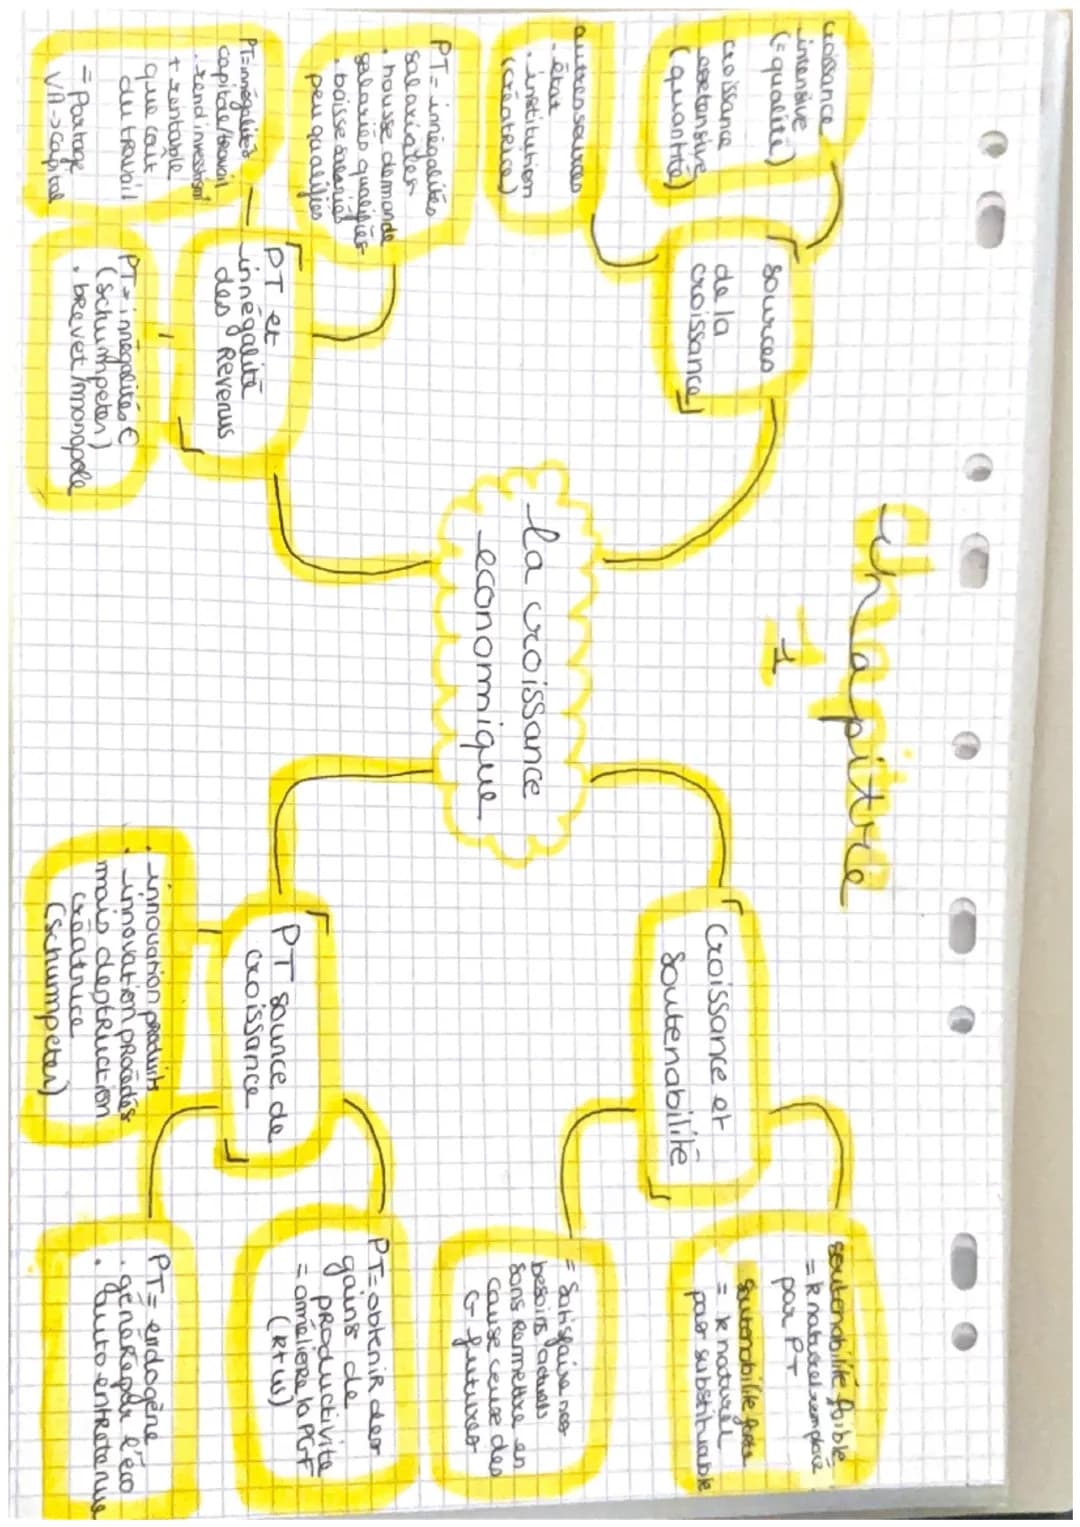 chapitre
1
la croissance
economique
sources
de la
croissance
croissance
intensive
(=qualité)
croissance
extensive
(quantité)
autres sources
. état
. institution
(créatrice)
PT et
inégalité
des Revenus
PT = innégalités
salariales
. hausse demande
salariés qualifiés
. baisse salariés
peu qualifiés
PT = innégalités
capital/travail
. rend investissmt
+ rentable
que coût
du travail
= Partage
VA -> capital
PT = innégalités €
(schumpeter)
. brevet/monopole
Croissance et
Soutenabilité
soutenabilité faible
= k naturel remplacé
par PT
soutenabilité forte
= k naturel
pas substituable
= Satisfaire nos
besoins actuels
sans Remettre en
cause ceux des
G- futures
PT source de
croissance
PT = obtenir des
gains de
productivité
= améliore la PGF
(k+w)
. innovation produits
. innovation procédés
mais destruction
créatrice
(schumpeter)
PT = endogène
. généré par l'éco
. auto entretenue